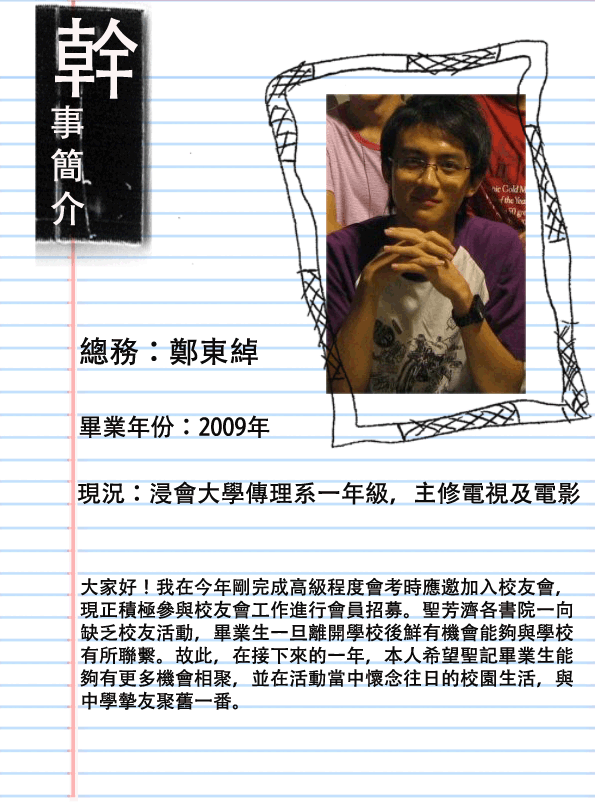 幹
事
簡
介
Air Jo
nic Gold M
of the Year
總務：鄭東綽
畢業年份：2009年
現況：浸會大學傳理系一年級，主修電視及電影
大家好！我在今年剛完成高級程度會考時應邀加入校友會，
現正積極參與校友會工作進行會員招募。聖芳濟各書院一向
缺乏校友活動，畢業生一旦離開學校後鮮有機會能夠與學校
有所聯繫。故此，在接下來的一年，本人希望聖記畢業生能
夠有更多機會相聚，並在活動當中懷念往日的校園生活，與
中學摯友聚舊一番。